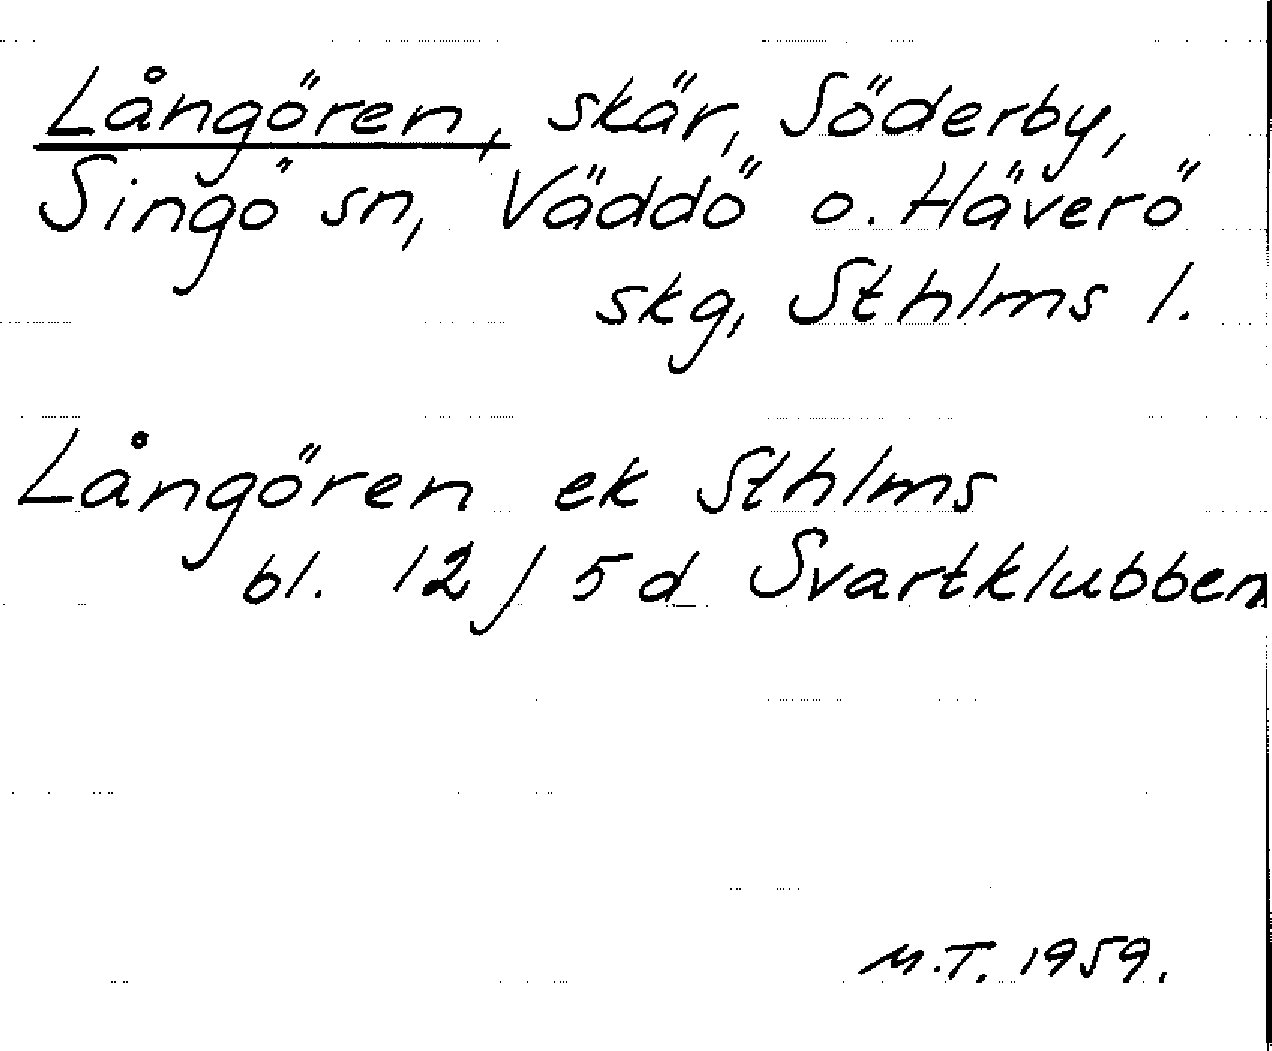 Långören, skär, Söderby,
Singö sn, Väddö o. Häverö
skg, Sthlms l.
Långören ek Sthlms
bl. 12 j 5 d Svartklubben
M.T. 1959.